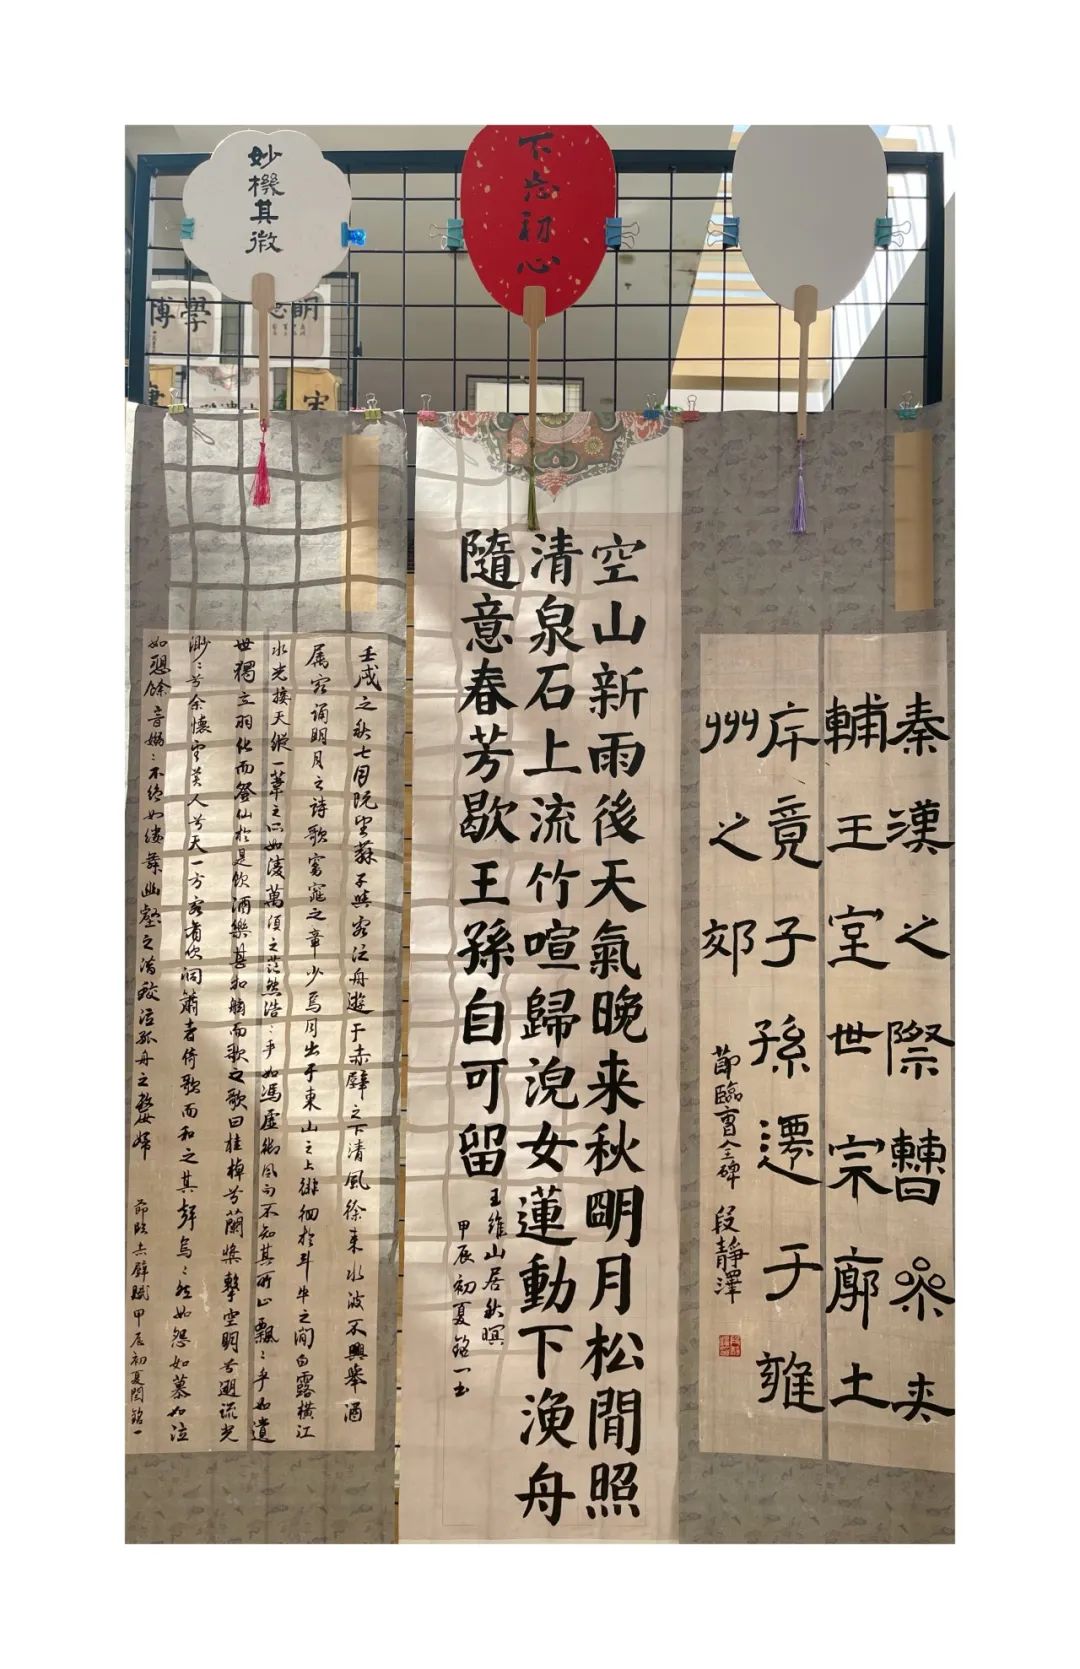 妙機其微
不忘初心
博學
明
秦漢之際曹參夾
輔王室世宗廓土
斥竟子孫遷于雍
州之郊
節臨曹全碑 段靜澤
空山新雨後天氣晚来秋明月松間照
清泉石上流竹喧歸浣女蓮動下漁舟
隨意春芳歇王孫自可留
王維山居秋暝
甲辰初夏銘一書
壬戌之秋七月既望蘇子與客泛舟遊于赤壁之下清風徐来水波不興舉酒
属客誦明月之詩歌窈窕之章少焉月出于東山之上徘徊於斗牛之間白露横江
水光接天縱一葦之所如淩萬頃之茫然浩〻乎如馮虚御風而不知其所止飄〻乎如遺
世獨立羽化而登仙於是飲酒樂甚扣舷而歌之歌曰桂棹兮蘭槳擊空明兮遡流光
渺〻兮余懷望美人兮天一方客有吹洞簫者倚歌而和之其聲烏〻然如怨如慕如泣
如愬餘音嫋〻不绝如縷舞幽壑之潛蛟泣孤舟之嫠婦
節臨赤壁賦甲辰初夏閆銘一